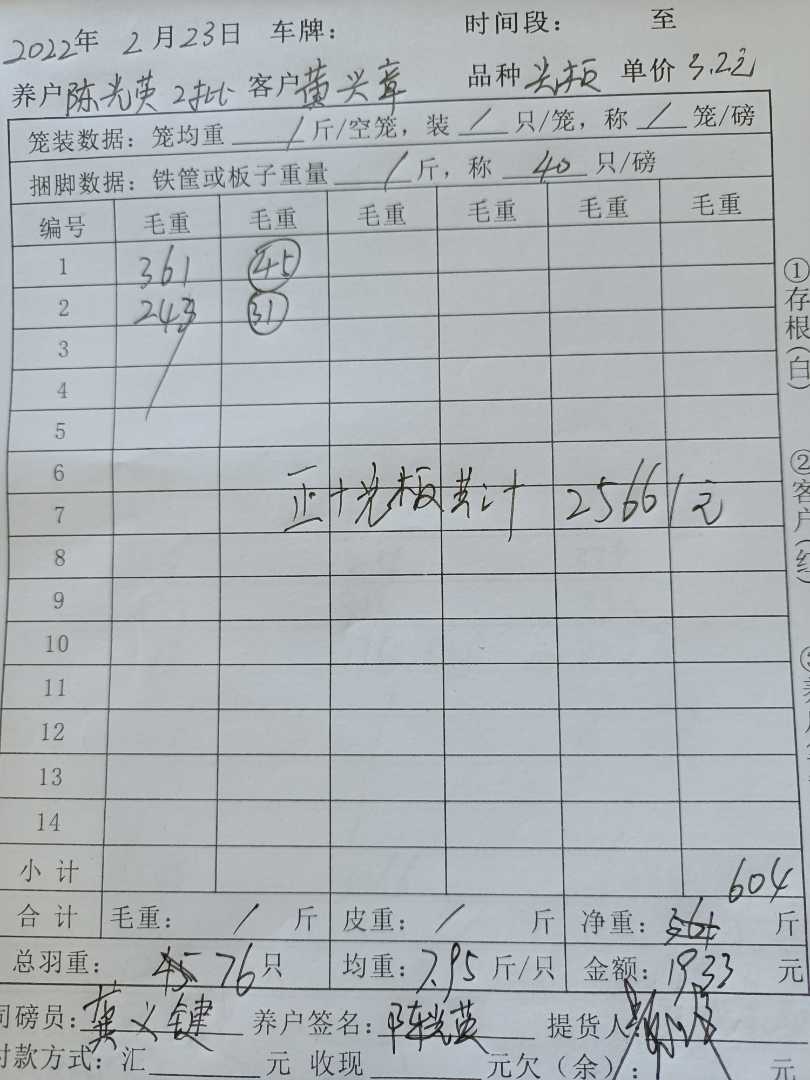 2022年 2月23日 车牌: 时间段: 至
养户 陈光英 2批 客户 黄兴章 品种 光板 单价 3.2元
笼装数据: 笼均重 / 斤/空笼, 装 / 只/笼, 称 / 笼/磅
捆脚数据: 铁筐或板子重量 / 斤, 称 40 只/磅
编号 毛重 毛重 毛重 毛重 毛重 毛重
1 361 45
2 243 31
3
4
5
6
7 正+光板共计 25661元
8
9
10
11
12
13
14
小计 604
合计 毛重: / 斤 皮重: / 斤 净重: 斤
总羽重: 45 76只 均重: 7.95 斤/只 金额: 1933 元
司磅员: 龚义键 养户签名: 陈光英 提货人:
付款方式: 汇 元 收现 元 欠(余): 元
①存根(白)
②客户(红)